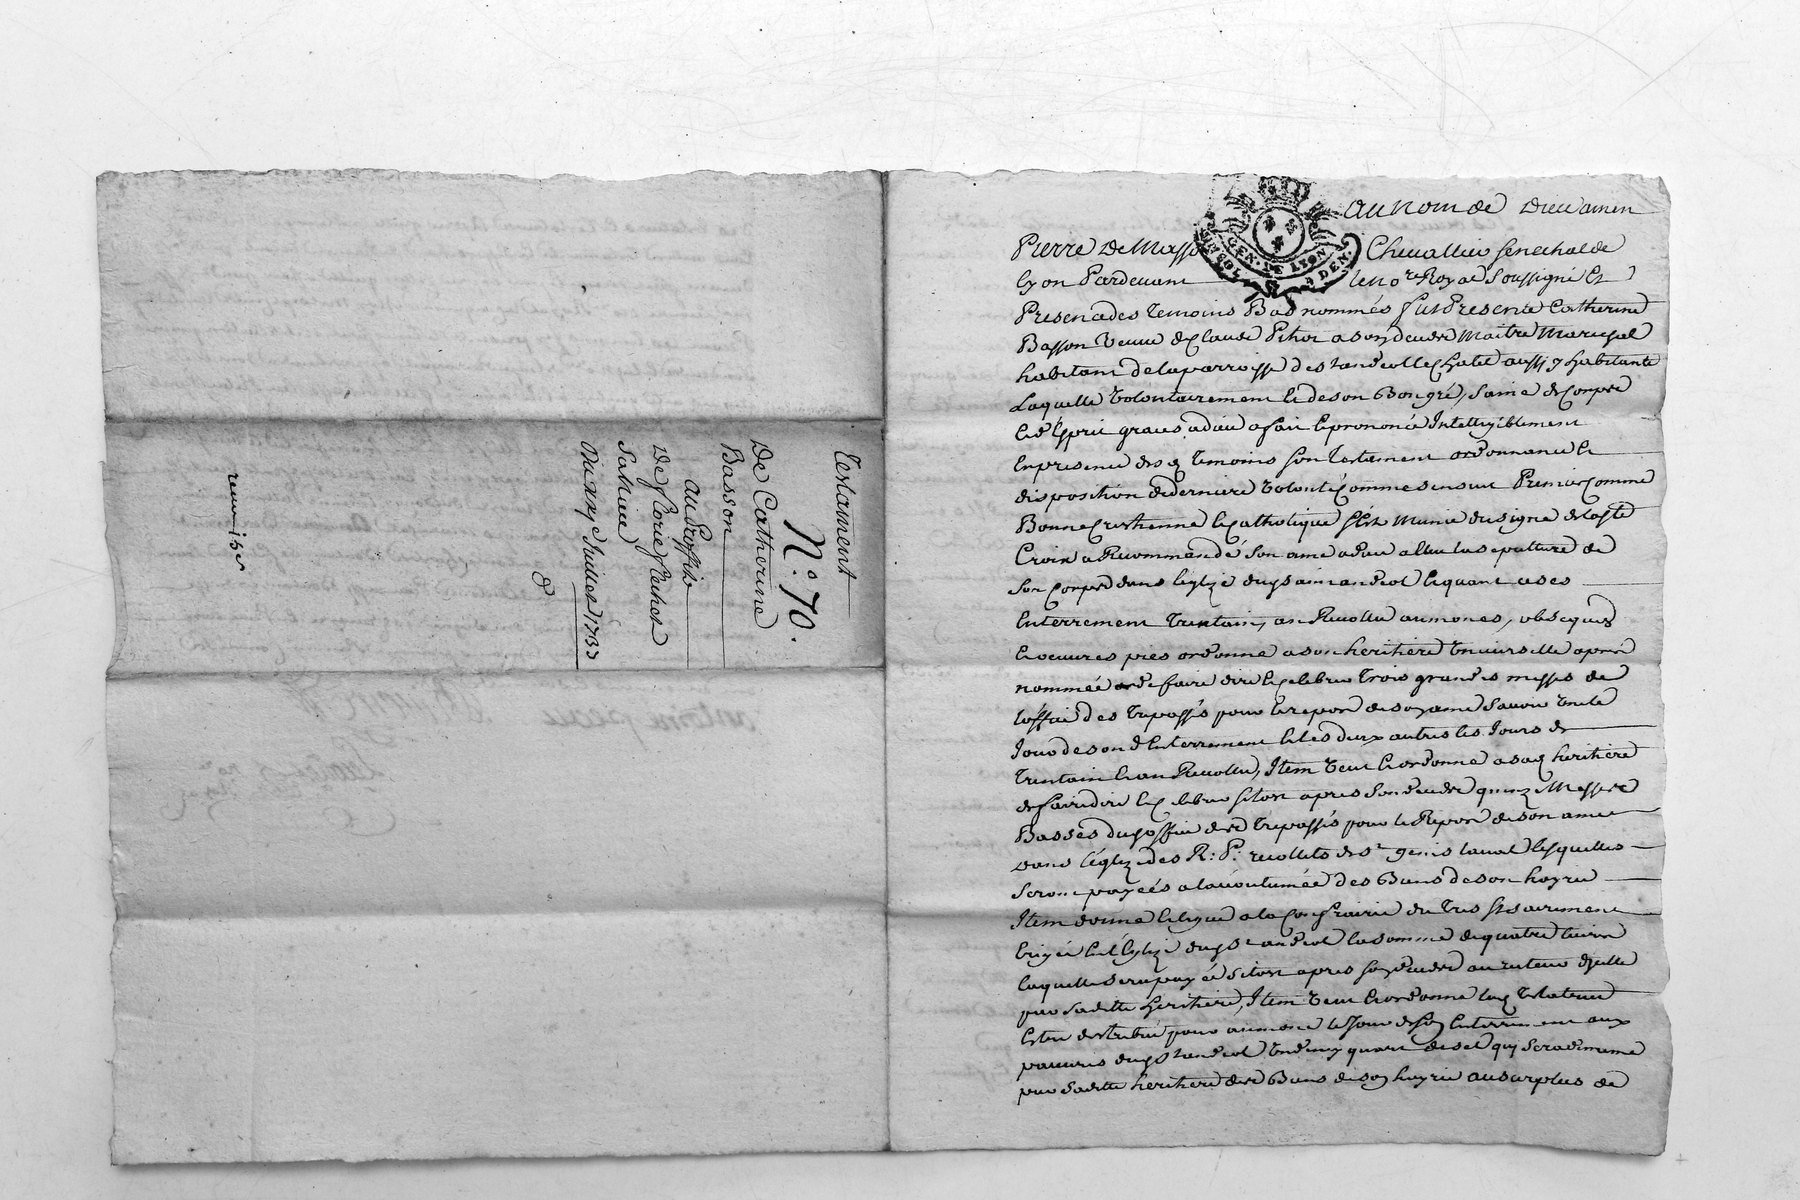 Testament
N.° 70.
De Catherine
Basson
au Proffit
De florie Pichot
Sa niece
Du xxx Juillet 1733
GEN. DE LYON
au nom de Dieu amen
Pierre De Masso Chevallier senechal de
Lyon Pardevant le no.re Royal soussigné Et
Presence des temoins Bas nommés fut Presente Catherine
Basson veuve de Claude Pichot a son deceds Maitre Marechal
habitant de la parroisse de st andeol le Chatel aussi y habitante
Laquelle volontairement et de son Bon gré, saine de Corps
et d'Esprit graces a dieu a fait et prononcé Intelligiblement
En presence desd temoins son testament ordonnance et
disposition de derniere volonté Comme s'ensuit Premier Comme
Bonne Crestienne et Catholique s'est Munie du signe de la ste
Croix a Recommandé son ame a dieu a Elleu la sepulture de
son Corps dans l'eglize dud saint andeol Et quant a ses
Enterrement trentain, an Revollu aumones, obseques
Et oeuvres pies ordonne a son heritiere universelle apres
nommée de faire dire et celebrer trois grandes messes de
l'office des trepassés pour le repos de son ame savoir une le
Jour de son d Enterrement et les deux autres les Jours de
trentain et an Revollu, Item veut Et ordonne a sad heritiere
de faire dire et celebrer sitot apres son deceds quinze Messes
Basses dud office des trepassés pour le Repos de son ame
dans l'eglize des R: P: recollets de st genis laval lesquelles
seront payées a la coutumée des Biens de son hoyrie
Item donne et legue a la Confrairie du tres st sacrement
Erigée En l'Eglize dud st andeol la somme de quatre livres
laquelle sera payée sitot apres son deceds au recteur d'jcelle
par sadite heritiere, Item veut Et ordonne lad testatrice
Estre distribué pour aumone le Jour de son Enterrement aux
pauvres dud st andeol un demy quart de sel qui sera
par sadite heritiere des Biens de son hoyrie au surplus de